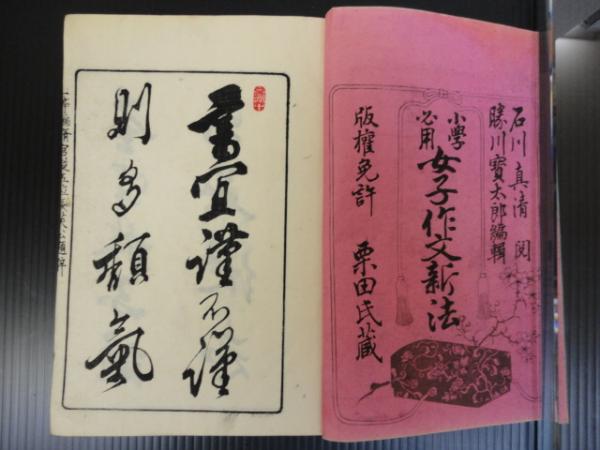 石川真清閲
勝川寶太郎編輯
小學必用
女子作文新法
版權免許
栗田氏藏
書宜謹不謹
則多頽氣